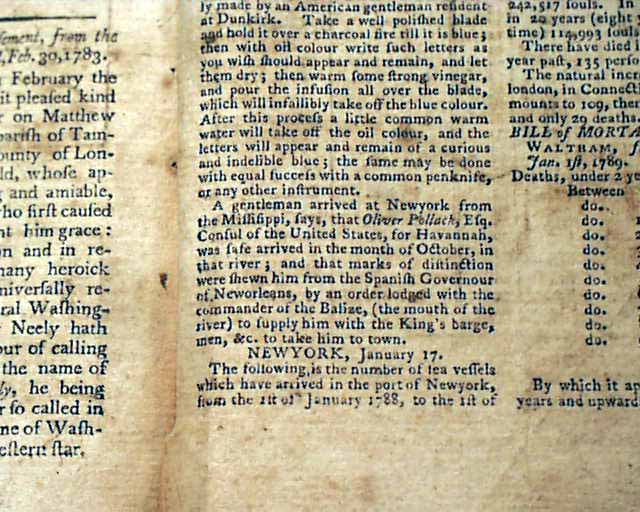 lement, from the
Feb. 30, 1783.
February the
it pleased kind
r on Matthew
parish of Tam-
ounty of Lon-
ld, whose ap-
g and amiable,
who first caused
nt him grace:
on and in re-
many heroick
niversally re-
ral Washing-
Neely hath
our of calling
the name of
ly, he being
r so called in
ne of Wash-
estern star.
ly made by an American gentleman resident
at Dunkirk. Take a well polished blade
and hold it over a charcoal fire till it is blue;
then with oil colour write such letters as
you wish should appear and remain, and let
them dry; then warm some strong vinegar,
and pour the infusion all over the blade,
which will infallibly take off the blue colour.
After this process a little common warm
water will take off the oil colour, and the
letters will appear and remain of a curious
and indelible blue; the same may be done
with equal success with a common penknife,
or any other instrument.
A gentleman arrived at Newyork from
the Missisippi, says, that Oliver Pollack, Esq.
Consul of the United States, for Havannah,
was safe arrived in the month of October, in
that river; and that marks of distinction
were shewn him from the Spanish Governour
of Neworleans, by an order lodged with the
commander of the Balize, (the mouth of the
river) to supply him with the King's barge,
men, &c. to take him to town.
NEWYORK, January 17.
The following, is the number of sea vessels
which have arrived in the port of Newyork,
from the 1st of January 1788, to the 1st of
242,517 souls. In
in 20 years (eight
time) 114,993 souls
There have died
year past, 135 perso
The natural incr
london, in Connecti
mounts to 109, ther
and only 29 deaths.
BILL of MORTA
WALTHAM, f
Jan. 1st, 1789.
Deaths, under 2 ye
Between
do.
do.
do.
do.
do.
do.
do.
do.
do.
By which it ap
years and upward